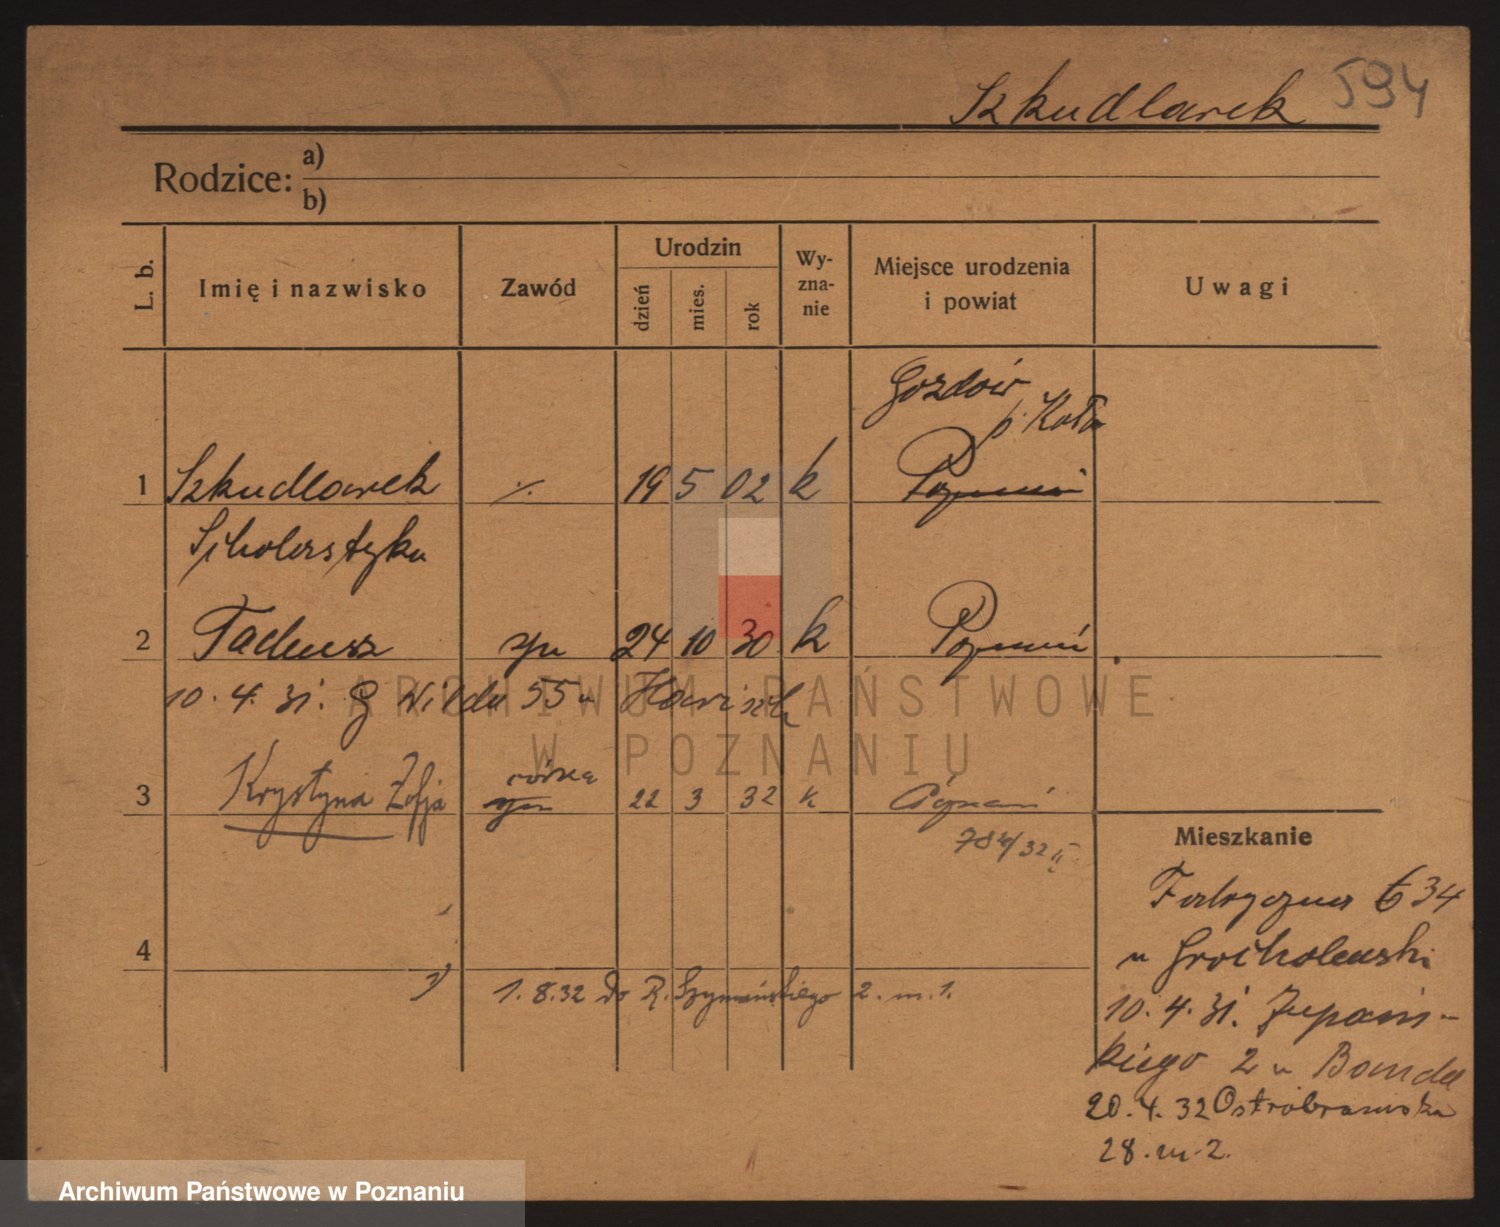 Szkudlarek 594
Rodzice: a)
b)
L. b. Imię i nazwisko Zawód Urodzin dzień mies. rok Wy-zna-nie Miejsce urodzenia i powiat Uwagi
Gozdów
p. Koło
1 Szkudlarek ·/. 19 5 02 k Poznań
Scholastyka
2 Tadeusz syn 24 10 30 k Poznań
10. 4. 31. G Wilda 55 u
córka
3 Krystyna Zofja syn 22 3 32 k Poznań
Mieszkanie
Fabryczna 34
u Grocholewski
4
1) 1. 8. 32 do R. Szymańskiego 2. m. 1.
10. 4. 31. Żupań-
skiego 2 u
20. 4. 32 Ostrobramska
28. m. 2.
ARCHIWUM PAŃSTWOWE
W POZNANIU
Archiwum Państwowe w Poznaniu